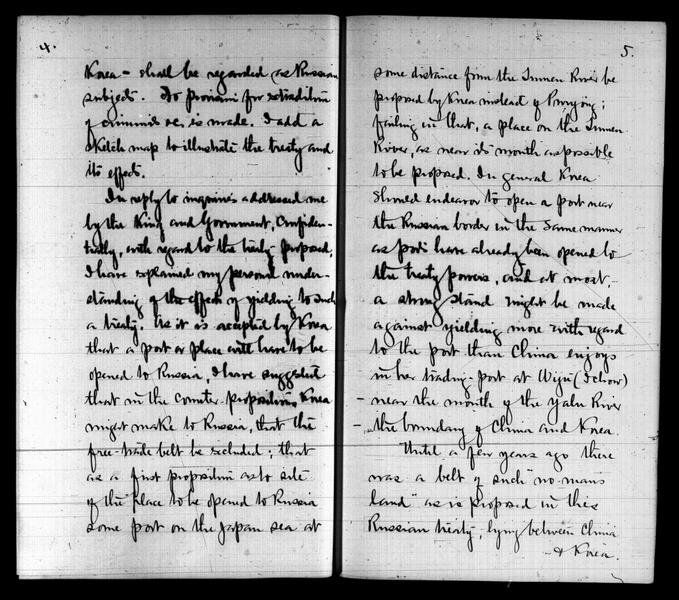 4.
Korea - shall be regarded as Russian
subjects. No provision for extradition
of criminals &c. is made. I add a
sketch map to illustrate the treaty and
its effects.
In reply to inquiries addressed me
by the King and Government, Confiden-
tially, with regard to the treaty proposed,
I have explained my personal under-
standing of the effects of yielding to such
a treaty. As it is accepted by Korea
that a port or place will have to be
opened to Russia, I have suggested
that in the counter propositions Korea
might make to Russia, that the
free-trade belt be excluded; that
as a first proposition as to site
of the place to be opened to Russia
some port on the Japan sea at
5.
some distance from the Tumen River be
proposed by Korea instead of
failing in that, a place on the Tumen
River, as near its mouth as possible
to be proposed. In general Korea
should endeavor to open a port near
the Russian border in the same manner
as ports have already been opened to
the treaty powers, and at most,
a strong stand might be made
against yielding more with regard
to the port than China enjoys
in her trading-port at Wiju (I chow)
- near the mouth of the Yalu River
- the boundary of China and Korea.
Until a few years ago there
was a belt of such "no-man's
land" as is proposed in this
Russian treaty, lying between China
& Korea.